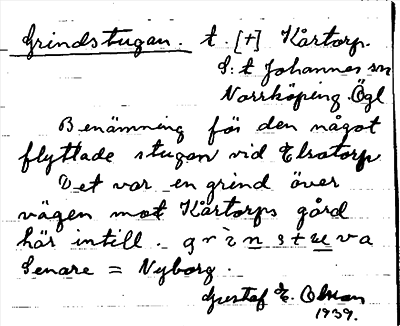 Grindstugan. t. [+] Kårtorp.
S:t Johannes sn
Norrköping Ögl
Benämning för den något
flyttade stugan vid Elsatorp
Det var en grind över
vägen mot Kårtorps gård
här intill. grinstuva
Senare = Nyborg.
Gustaf E. Olsson
1939.